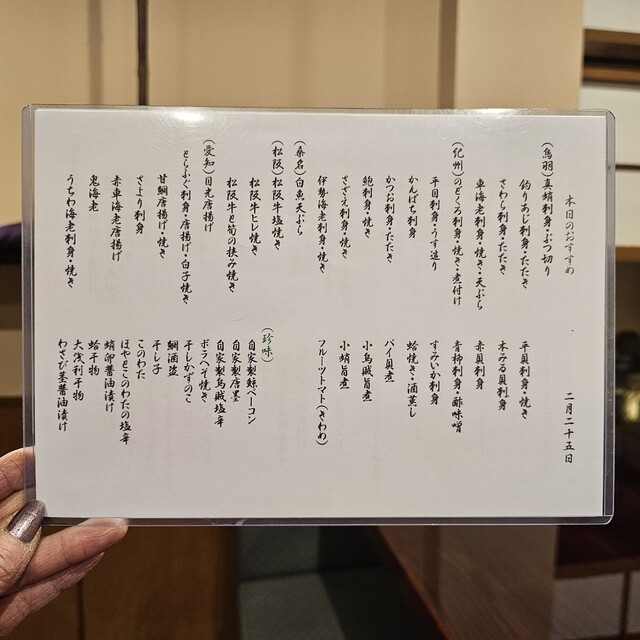 本日のおすすめ
二月二十五日
(鳥羽)真蛸刺身・ぶつ切り
釣りあじ刺身・たたき
さわら刺身・たたき
車海老刺身・焼き・天ぷら
(紀州)のどくろ刺身・焼き・煮付け
平目刺身・うす造り
かんぱち刺身
かつお刺身・たたき
鮑刺身・焼き
さざえ刺身・焼き
伊勢海老刺身・焼き
(桑名)白魚天ぷら
(松阪)松阪牛塩焼き
松阪牛ヒレ焼き
松阪牛と筍の挟み焼き
(愛知)目光唐揚げ
とらふぐ刺身・唐揚げ・白子焼き
甘鯛唐揚げ・焼き
さより刺身
赤車海老唐揚げ
鬼海老
うちわ海老刺身・焼き
平貝刺身・焼き
本みる貝刺身
赤貝刺身
青柳刺身・酢味噌
すみいか刺身
蛤焼き・酒蒸し
バイ貝煮
小烏賊旨煮
小蛸旨煮
フルーツトマト(きわめ)
(珍味)
自家製鯨ベーコン
自家製唐墨
自家製烏賊塩辛
ボラへそ焼き
干しかずのこ
鯛酒盗
干し子
このわた
ほやとこのわたの塩辛
蛸卵醤油漬け
蛤干物
大浅利干物
わさび茎醤油漬け